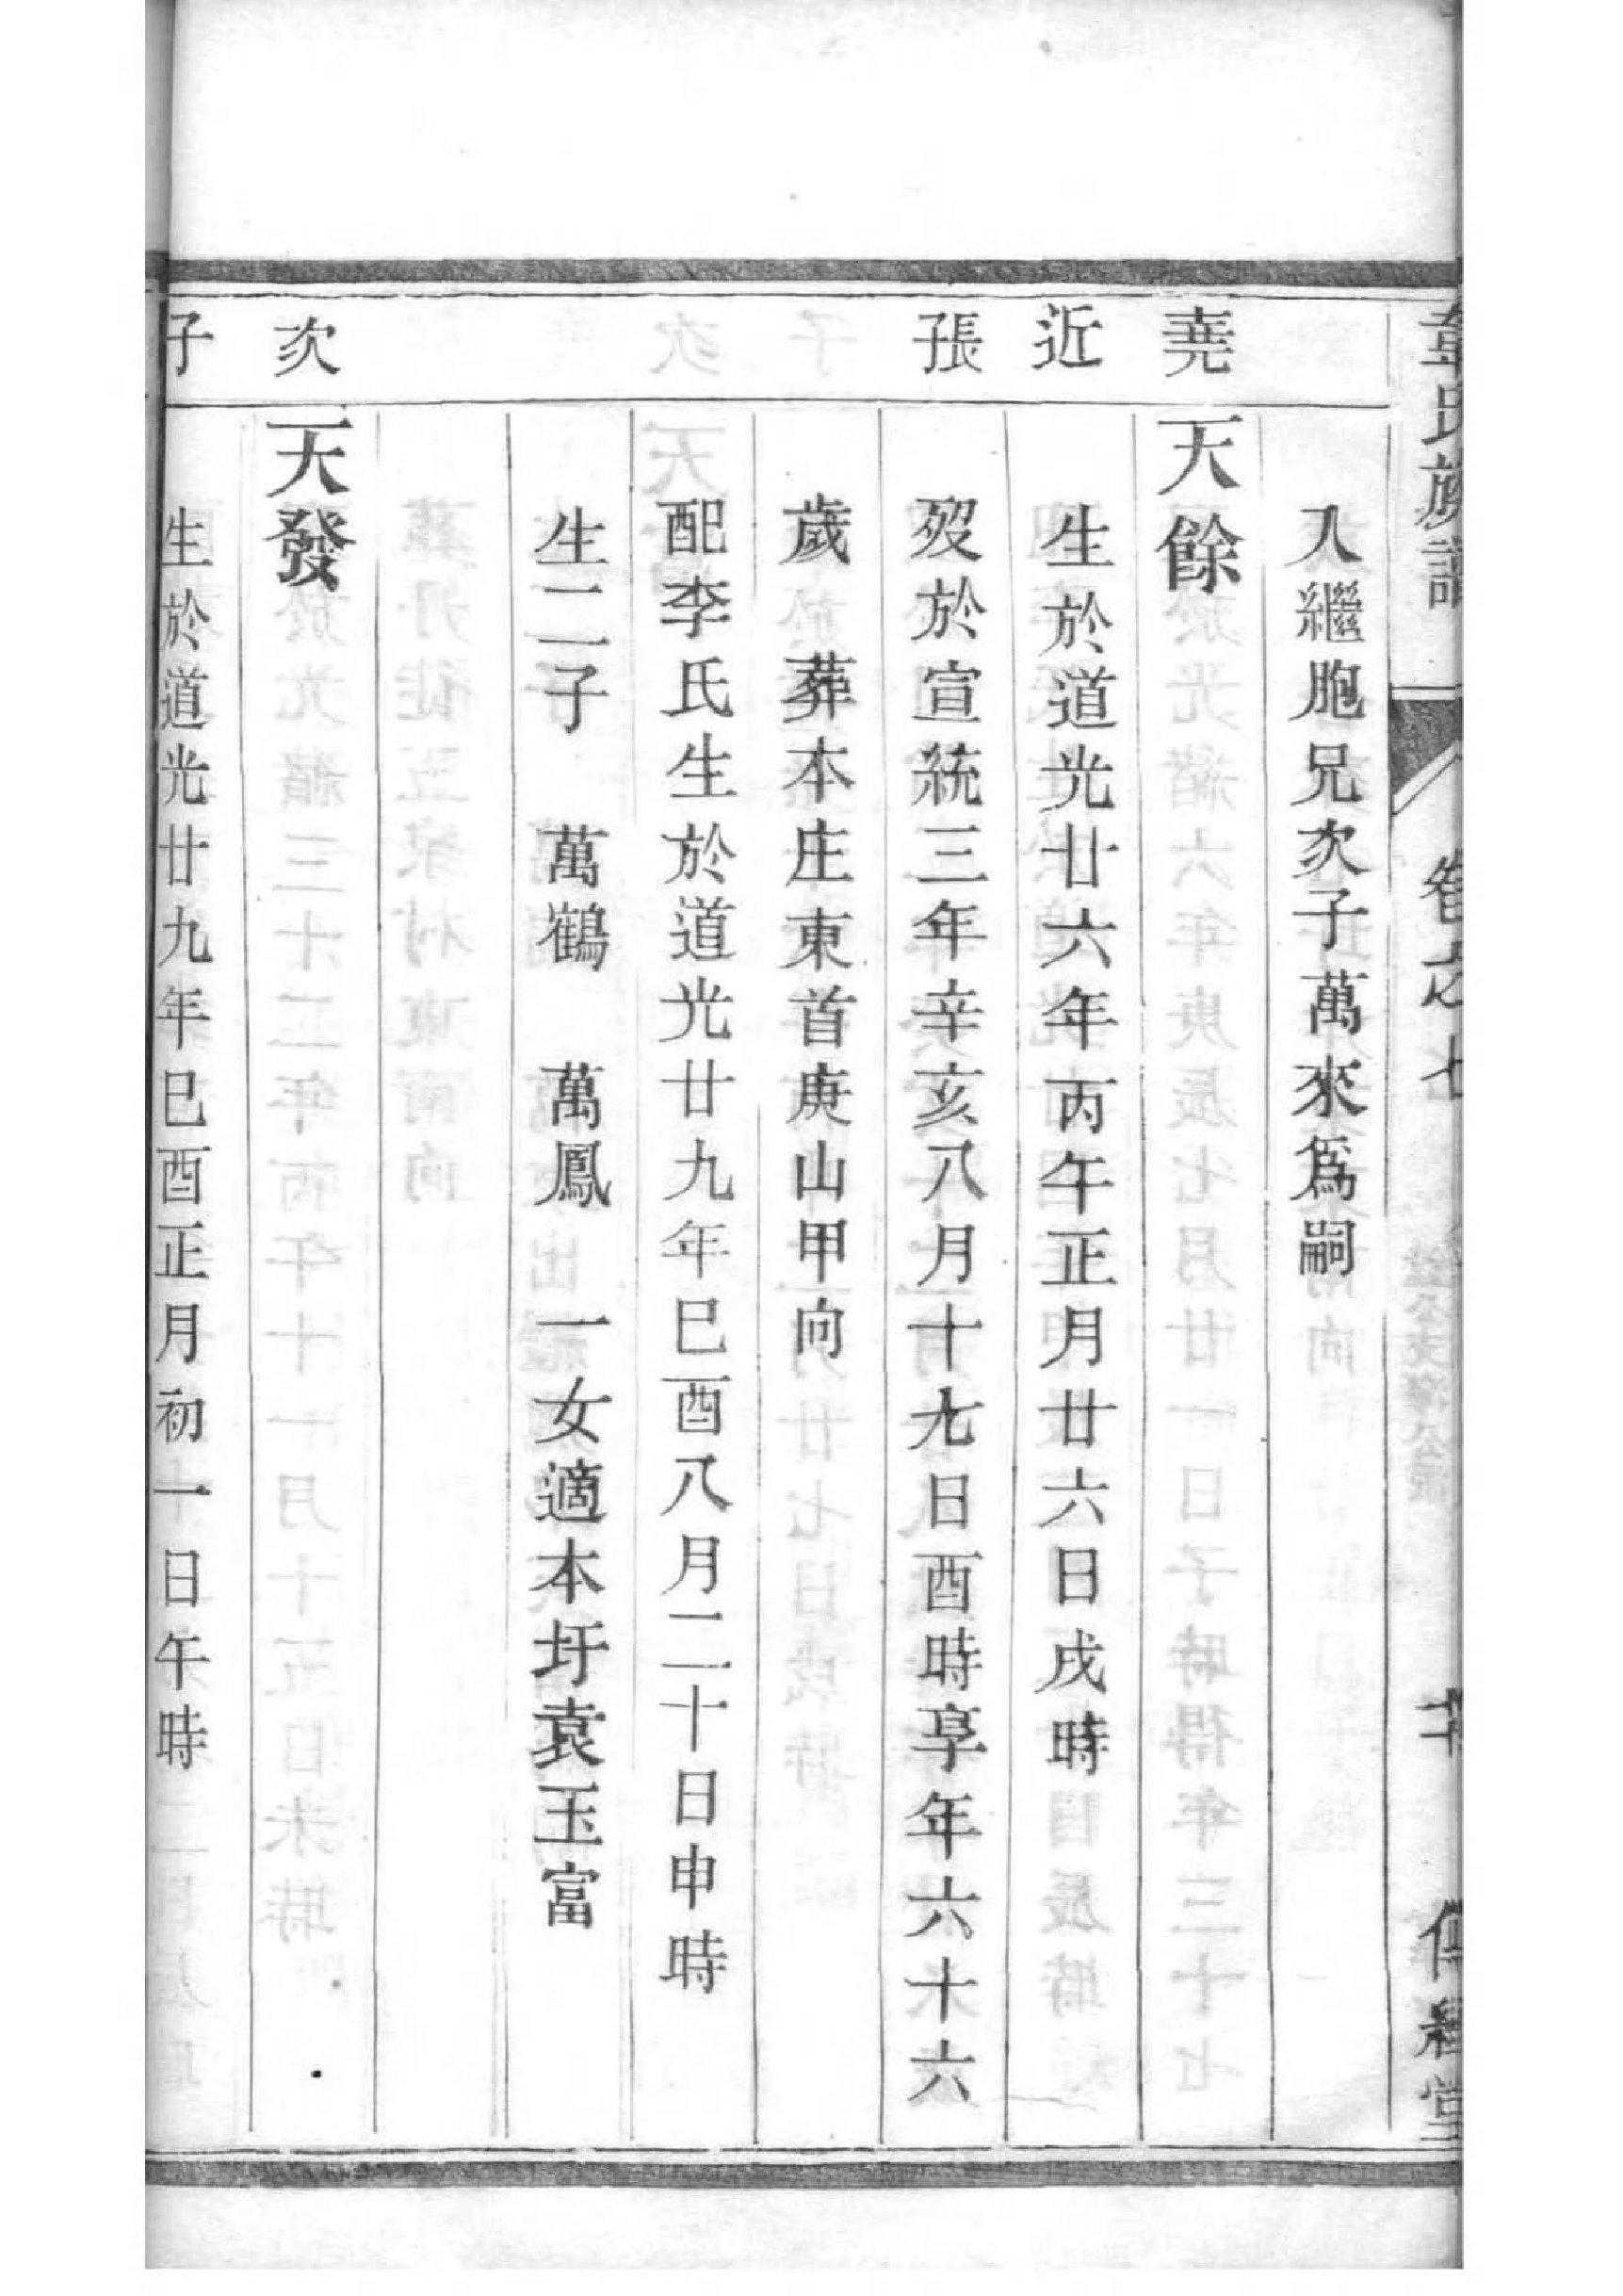 章氏族譜 卷之七 傳經堂
入繼胞兄次子萬來爲嗣
堯 天餘
近 生於道光廿六年丙午正月廿六日戌時
張 歿於宣統三年辛亥八月十九日酉時享年六十六
歲 葬本庄東首庚山甲向
配李氏生於道光廿九年巳酉八月二十日申時
生二子 萬鶴 萬鳳 一女適本圩袁玉富
次 天發
子 生於道光廿九年巳酉正月初一日午時